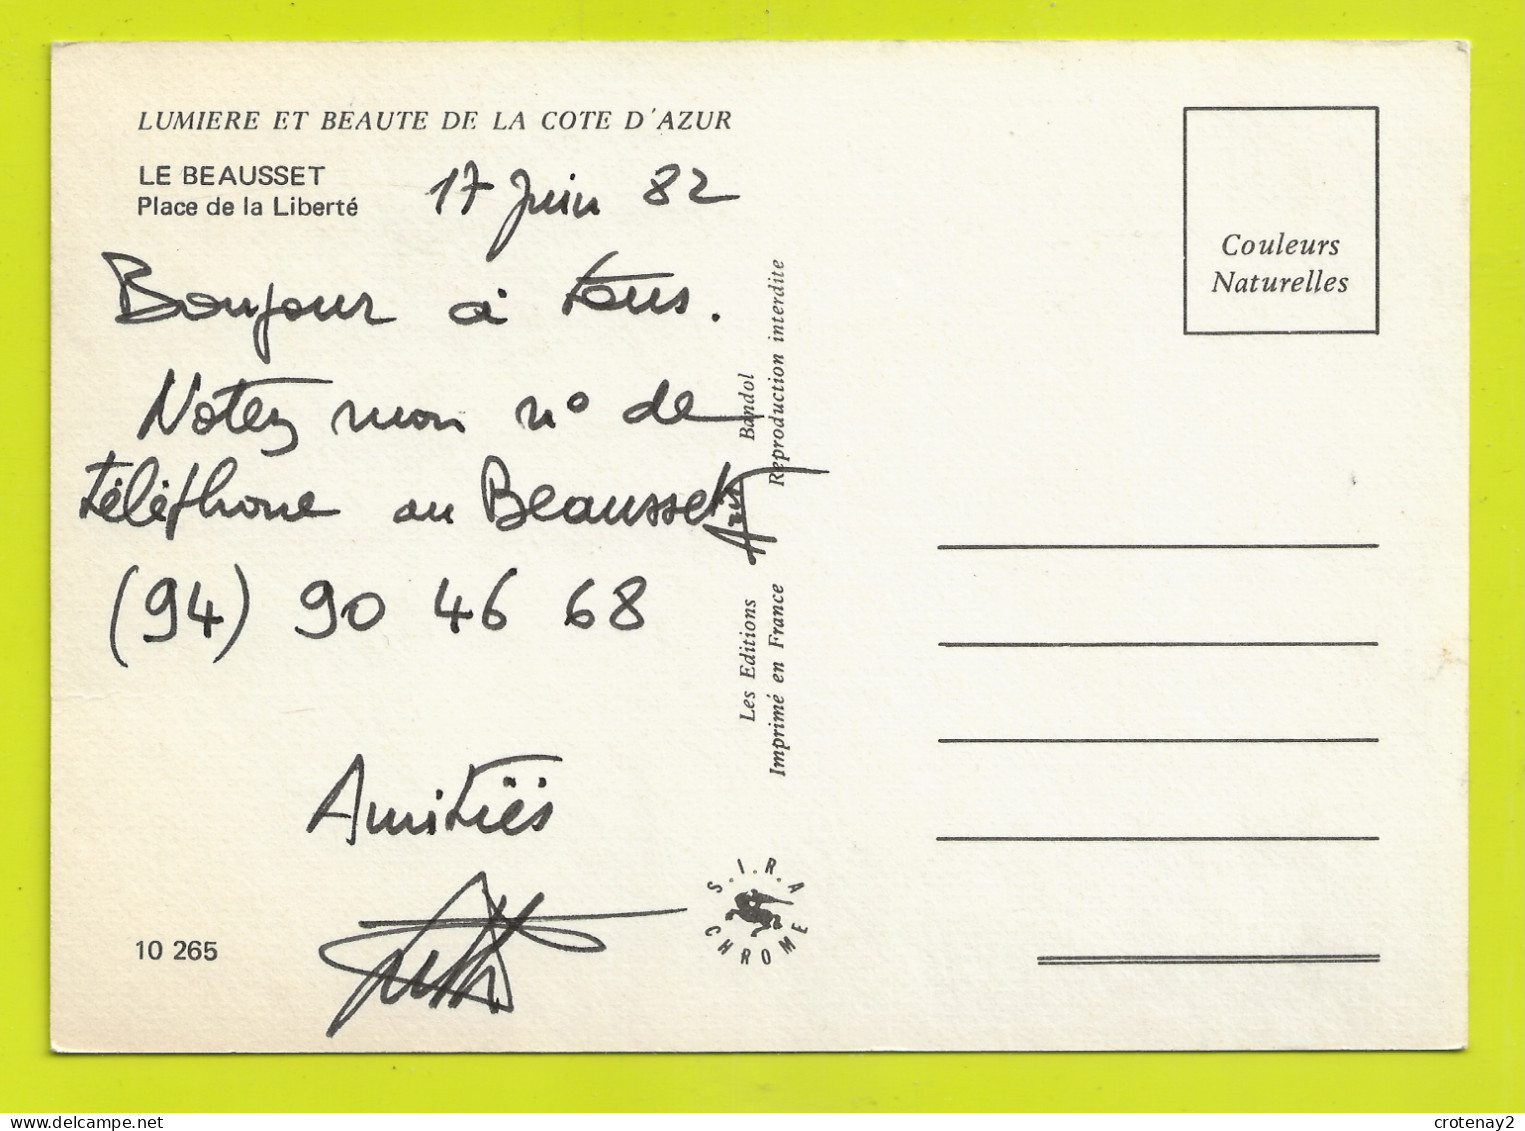 LUMIERE ET BEAUTE DE LA COTE D'AZUR
LE BEAUSSET
Place de la Liberté
17 Juin 82
Bonjour à tous.
Notez mon n° de
téléphone au Beausset
(94) 90 46 68
Amitiés
10 265
Les Editions Bandol
Imprimé en France Reproduction interdite
S.I.R.A
CHROME
Couleurs
Naturelles
crotenay2